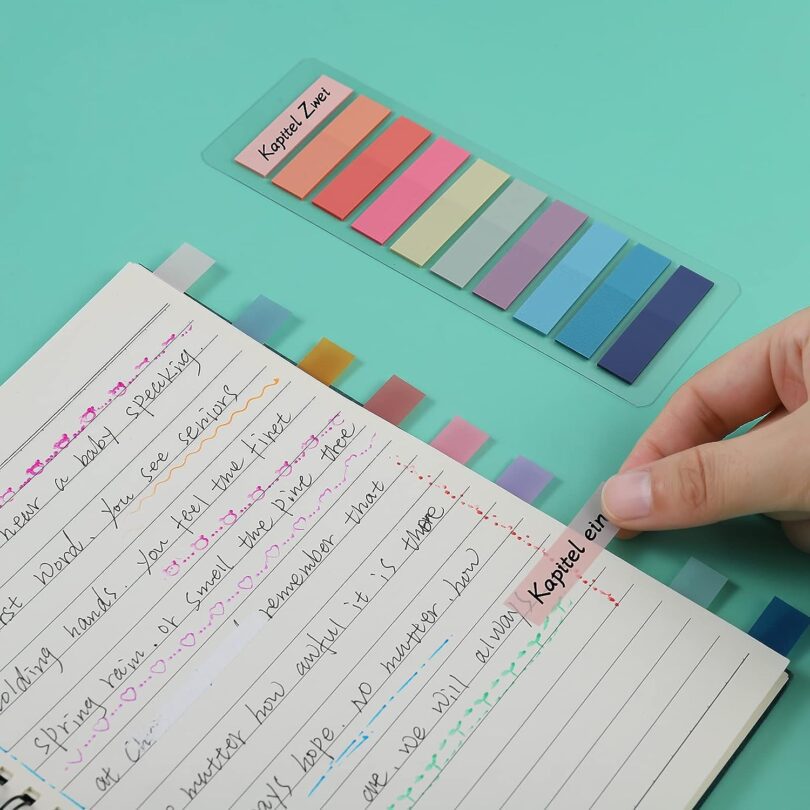 Kapitel Zwei
hear a baby speaking.
word. You see seniors
holding hands You feel the first
spring rain. or smell the pine thee
at remember that
matter how awful it is there
hope. No matter how
are. we will always
Kapitel ein